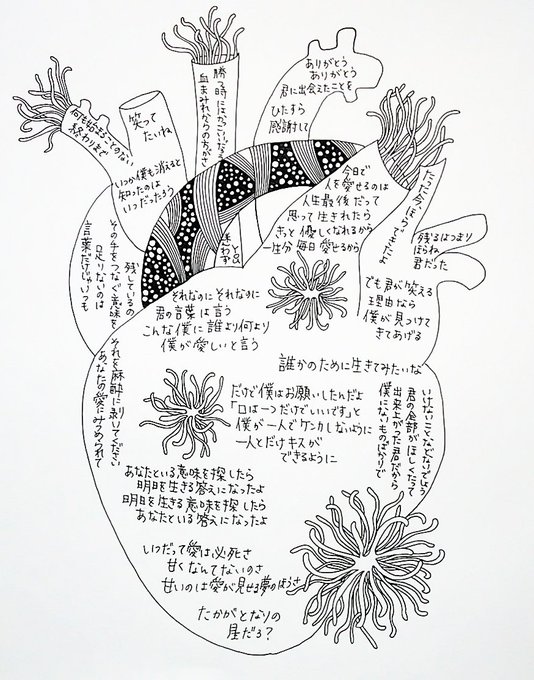 ありがとう
ありがとう
君に出会えたことを
ひたすら
感謝して
勝つ時にはかっこいいなる
血まみれからの方がさ
何も始まることのない
終わりまで
笑って
たいね
いつか僕も消えると
知ったのは
いつだったろう
今日で
人を愛せるのは
人生最後だって
思って生きれたら
きっと優しくなれるから
一生分 毎日 愛せるから
たった今ほらできたよ
残るはつまり
ほらね
君だった
でも君が笑える
理由なら
僕が見つけて
きてあげる
残しているの
その手をつなぐ意味を
足りないのは
言葉だけじゃいつも
それなのにそれなのに
君の言葉は言う
こんな僕に誰より何より
僕が愛しいと言う
誰かのために生きてみたいな
それを麻酔に剥いてください
あなたの愛にみつめられて
だけど僕はお願いしたんだよ
「口は一つだけでいいです」と
僕が一人でケンカしないように
一人とだけキスが
できるように
いけないことなどないでしょう
君の全部がほしくたって
出来上がった君だから
僕にないものばかりで
あなたといる意味を探したら
明日を生きる答えになったよ
明日を生きる意味を探したら
あなたといる答えになったよ
いつだって愛は必死さ
甘くなんてないのさ
甘いのは愛が見せる夢のほうさ
たかがとなりの
星だろ?